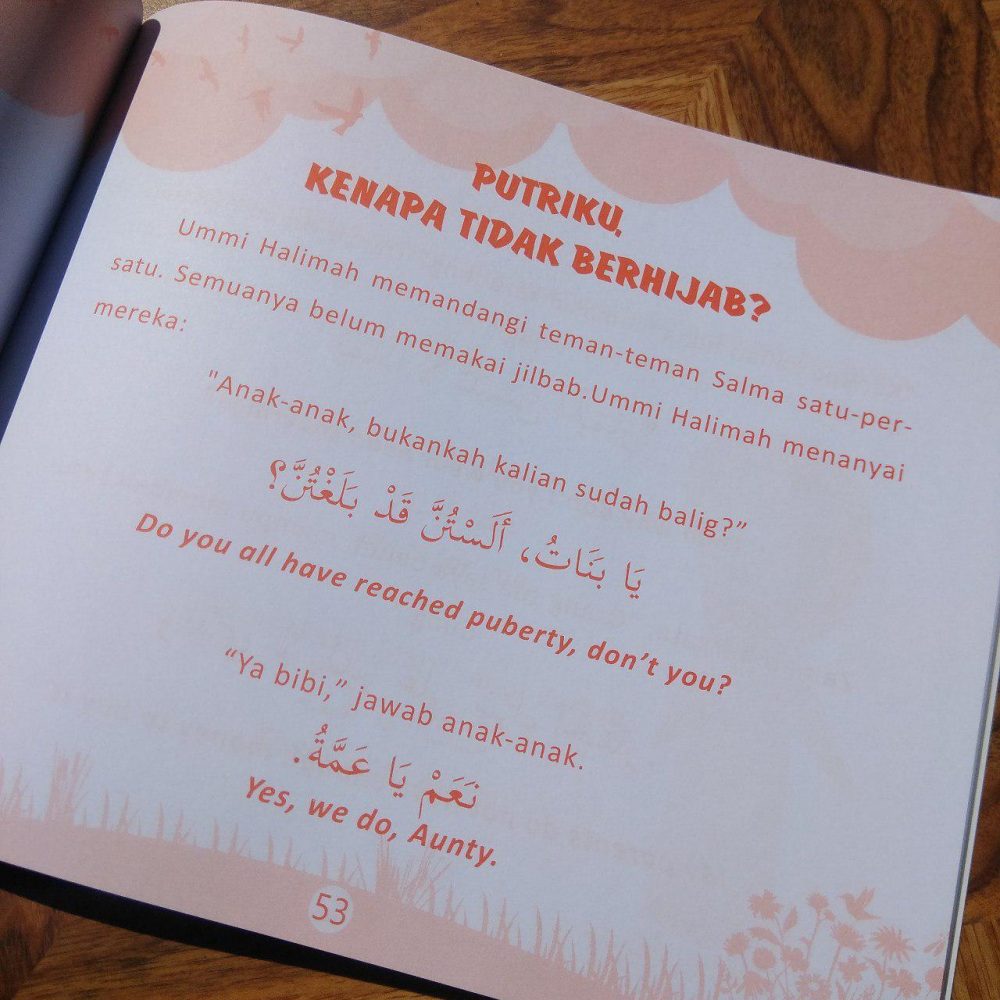 PUTRIKU,
KENAPA TIDAK BERHIJAB?
Ummi Halimah memandangi teman-teman Salma satu-per-
satu. Semuanya belum memakai jilbab.Ummi Halimah menanyai
mereka:
"Anak-anak, bukankah kalian sudah balig?”
يَا بَنَاتُ، أَلَسْتُنَّ قَدْ بَلَغْتُنَّ؟
Do you all have reached puberty, don’t you?
“Ya bibi,” jawab anak-anak.
نَعَمْ يَا عَمَّةُ.
Yes, we do, Aunty.
53